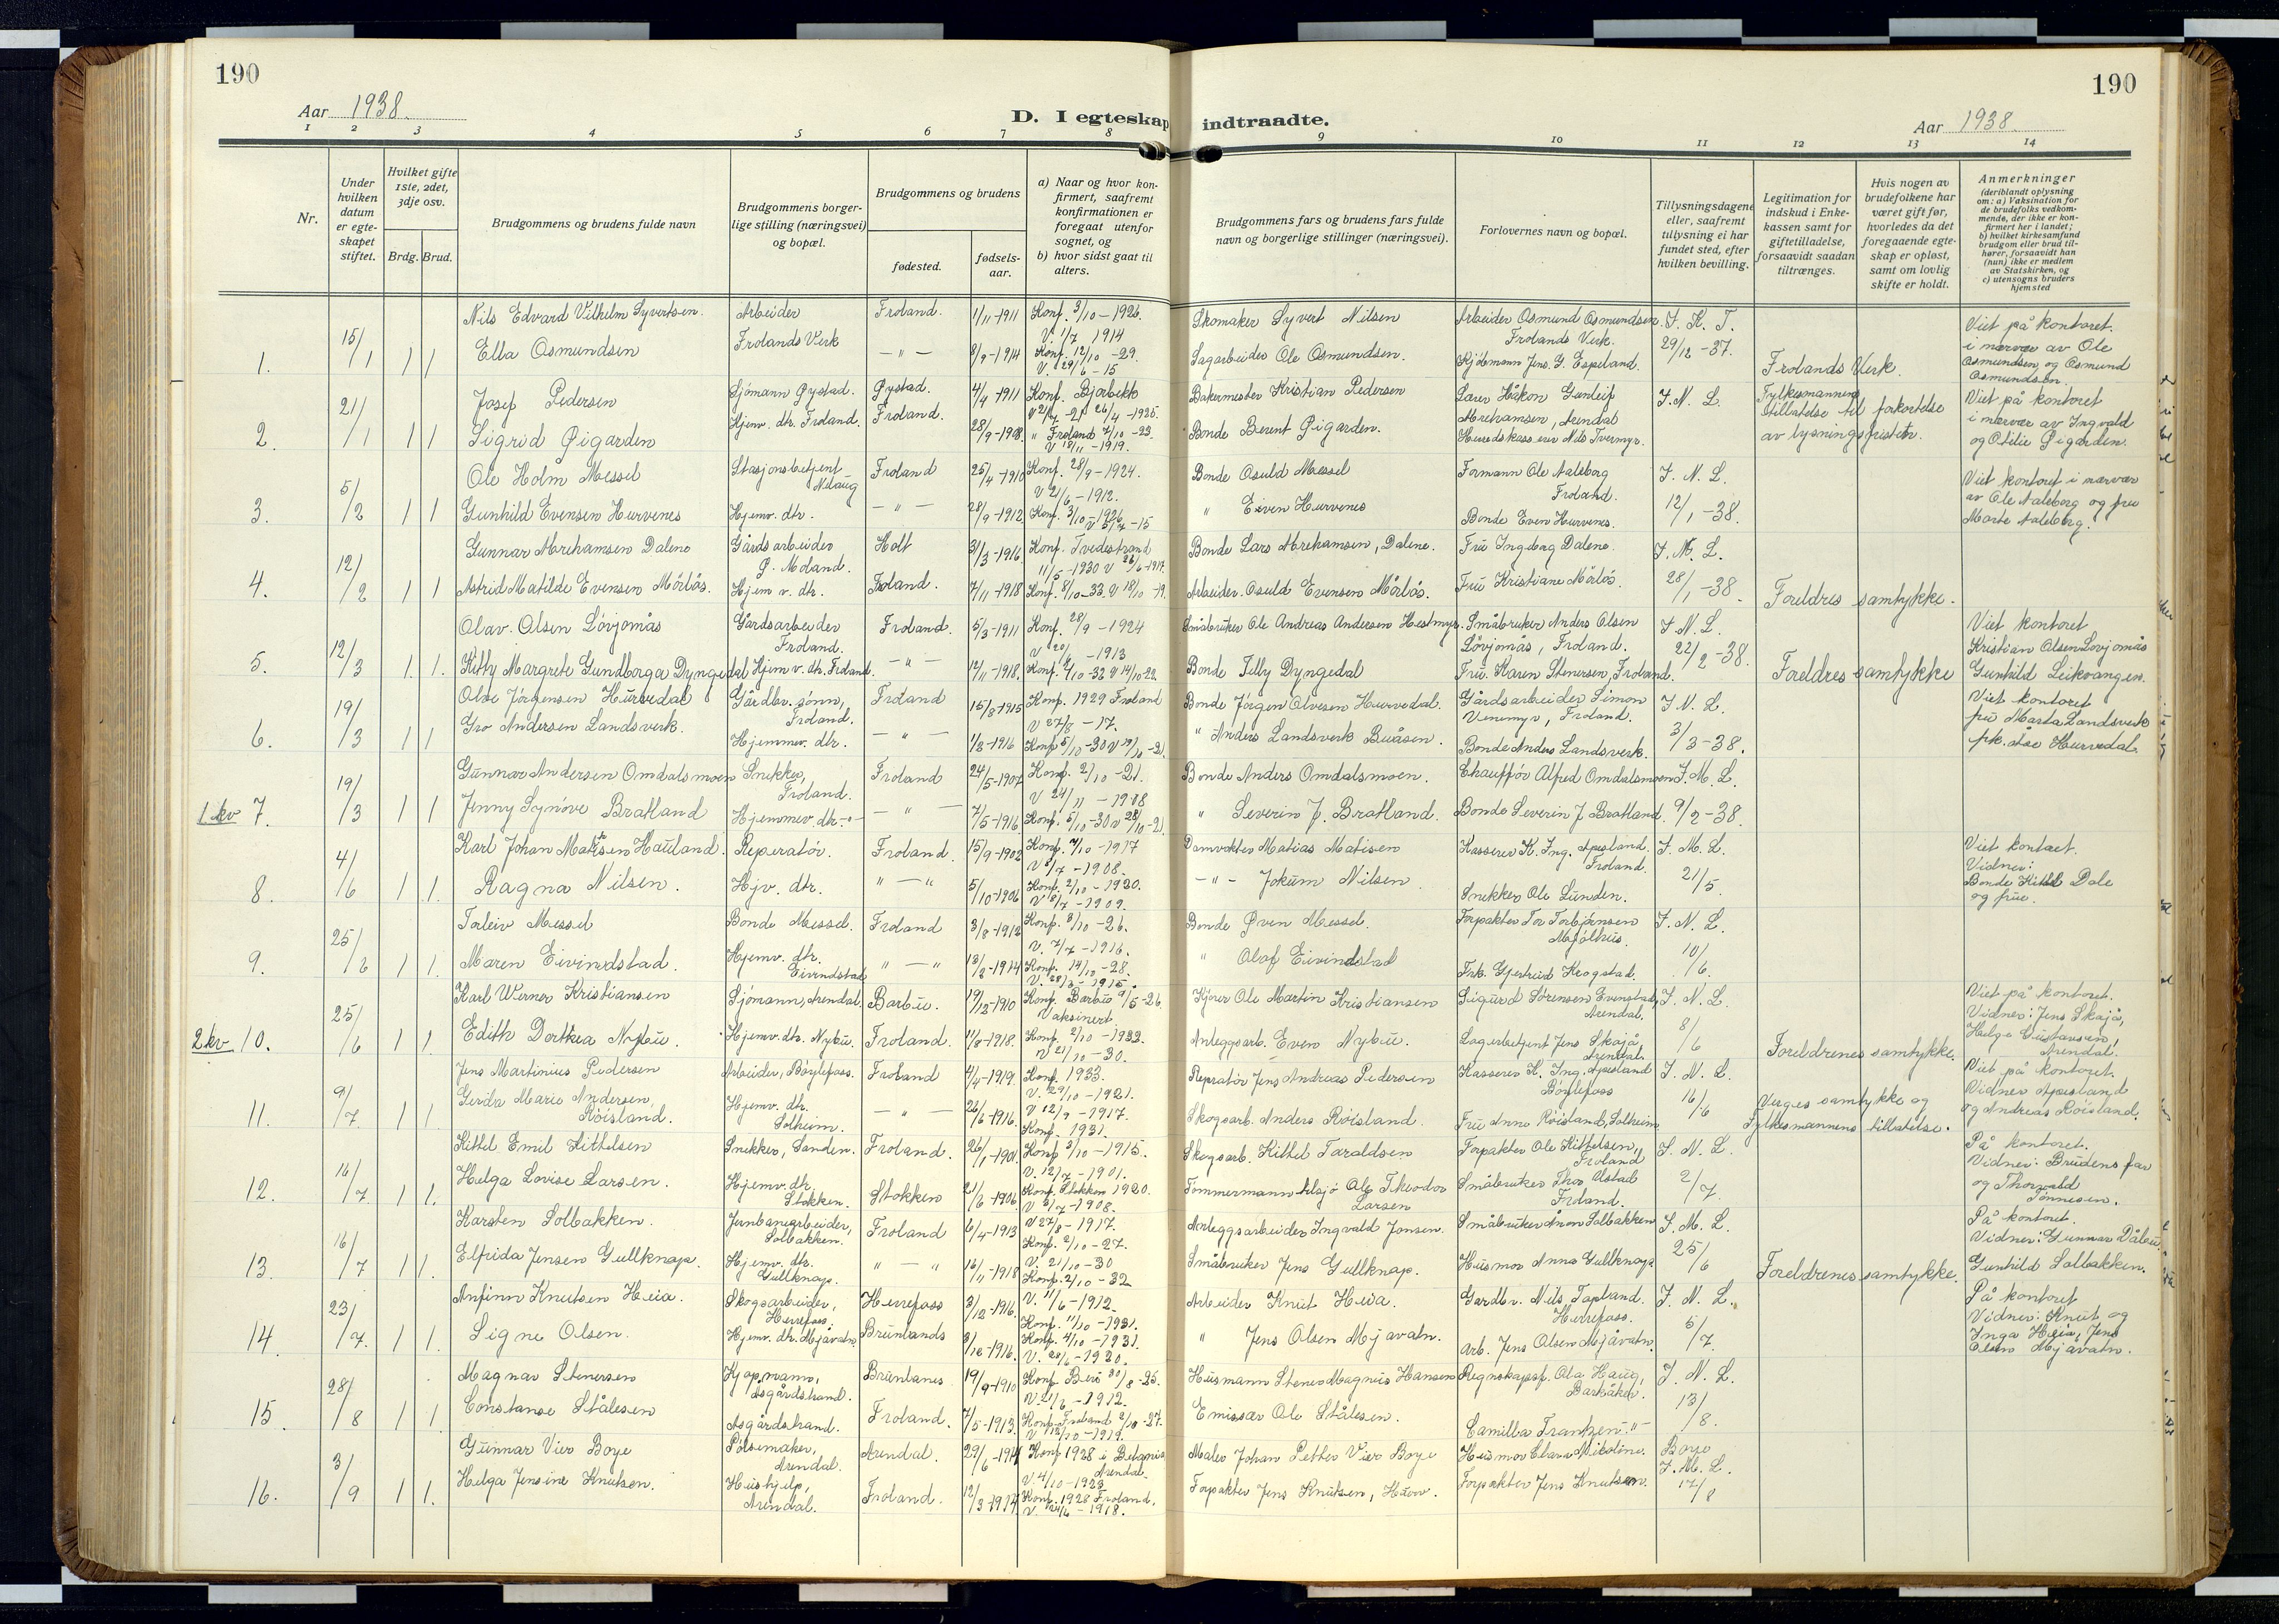 190
190
Aar 1938.
D. I egteskap indtraadte.
Aar 1938.
1 2 3 4 5 6 7 8 9 10 11 12 13 14
Nr.
Under hvilken datum er egteskapet stiftet.
Hvilket gifte 1ste, 2det, 3dje osv.
Brdg. Brud.
Brudgommens og brudens fulde navn
Brudgommens borgerlige stilling (næringsvei) og bopæl.
Brudgommens og brudens
fødested.
fødselsaar.
a) Naar og hvor konfirmert, saafremt konfirmationen er foregaat utenfor sognet, og
b) hvor sidst gaat til alters.
Brudgommens fars og brudens fars fulde navn og borgerlige stillinger (næringsvei).
Forlovernes navn og bopæl.
Tillysningsdagene eller, saafremt tillysning ei har fundet sted, efter hvilken bevilling.
Legitimation for indskud i Enkekassen samt for giftetilladelse, forsaavidt saadan tiltrænges.
Hvis nogen av brudefolkene har været gift før, hvorledes da det foregaaende egteskap er opløst, samt om lovlig skifte er holdt.
Anmerkninger
(deriblandt oplysning om: a) Vaksination for de brudefolks vedkommende, der ikke er konfirmert her i landet; b) hvilket kirkesamfund brudgom eller brud tilhører, forsaavidt han (hun) ikke er medlem av Statskirken, og c) utensogns bruders hjemsted
1. 15/1 1 1
Nils Edvard Vilhelm Syvertsen. Arbeider Frolands Verk Froland. 1/11-1911 Konf. 3/10-1926. V. 1/7 1914 Skomaker Syvert Nilsen Arbeider Osmund Osmundsen. Frolands Verk. J. K. T. 29/12-37.
Ella Osmundsen — " — 8/9-1914 Konf. 12/10-29. V. 29/6-15 Sagarbeider Ole Osmundsen. Kjömann Jens G. Espeland. Frolands Verk.
Viet på kontoret. i nærvær av Ole Osmundsen og Osmund Osmundsen.
2. 21/1 1 1
Josef Pedersen Sjömann Øystad. Øystad. 4/4-1911 Konf. Bjorbekk 26/4-1925. Bakermester Kristian Pedersen Lærer Håkon Gunleif Abrehamsen, Arendal J. N. L. Fylkesmannens tillatelse til forkortelse av lysningsfristen.
Sigrid Øigarden Hjemv. dtr. Froland. Froland. 28/9-1908. " Froland 7/10-23. V 18/11-1919. Bonde Berent Øigarden. Herredskasserer Nils Tvermyr.
Viet på kontoret i nærvær av Ingvald og Otilie Øigarden.
3. 5/2 1 1
Ole Holm Messel Stasjonsbetjent Nelaug Froland 25/4-1910 Konf. 28/9-1924. V 21/6-1912. Bonde Osuld Messel Formann Ole Aalsborg Froland. J. N. L. 12/1-38.
Gunhild Evensen Hurvenes Hjemv. dtr. — " — 28/9-1912 Konf. 3/10-1926 V 5/7-15 " Even Hurvenes Bonde Even Hurvenes.
Viet kontoret i nærvær av Ole Aalsborg og fru Marte Aalsborg.
4. 12/2 1 1
Gunnar Abrehamsen Dalene Gårdsarbeider Ø. Moland. Holt 31/3-1916 Konf. Tvedestrand 11/5-1930 V 26/6-1917. Bonde Lars Abrehamsen, Dalene. Fru Ingeborg Dalene. J. N. L. 28/1-38.
Astrid Matilde Evensen Mörlös. Hjem v. dtr. Froland. 7/11-1918 Konf. 8/10-33. V 18/10-19. Arbeider Osuld Evensen Mörlös. Fru Kristiane Mörlös. Foreldres samtykke.
5. 12/3 1. 1.
Olav Olsen Lövjomås Gårdsarbeider Froland. Froland. 5/3-1911 Konf. 28/9-1924 V 20/6-1913 Småbruker Ole Andreas Andersen Hestmyr. Småbruker Anders Olsen Lövjomås, Froland. J. N. L. 22/2-38.
Kitty Margrete Gundborga Dyngedal Hjem v. dtr. Froland. — " — 12/11-1918. Konf. 2/10-32 V 14/10-22. Bonde Telly Dyngedal Fru Karen Stenersen, Froland. Foreldres samtykke
Viet kontoret Kristian Olsen Lövjomås Gunhild Leikvangen.
6. 19/3 1 1
Olve Jörgensen Hurvedal Gårdbr. sønn, Froland. Froland 15/8-1915 Konf. 1929 Froland V 27/8-17. Bonde Jörgen Olvesen Hurvedal. Gårdsarbeider Simon Venemyr, Froland. J. N. L. 3/3-38.
Gro Anderssen Landsverk. Hjemmev. dtr. — " — 1/3-1916 Konf 5/10-30 V 19/10-21. " Anders Landsverk Buåsen. Bonde Anders Landsverk.
Viet kontoret fru Marta Landsverk frk. Åse Hurvedal.
1 kv 7. 19/3 1 1
Gunnar Andersen Omdalsmoen Snekker, Froland. Froland 24/5-1907 Konf. 2/10-21. V 24/11-1908 Bonde Anders Omdalsmoen. Chaufför Alfred Omdalsmoen J. N. L. 9/2-38.
Jenny Synöve Bratland Hjemmev. dtr. — " — 7/5-1916 Konf. 5/10-30 V 28/10-21. " Severin J. Bratland. Bonde Severin J Bratland.
8. 4/6 1 1.
Karl Johan Mathisen Hauland. Reperatör. Froland. 15/9-1902 Konf. 7/10-1917 V 8/7-1908. Damvokter Matias Matisen Kasserer K. Ing. Apesland. Froland. J. N. L. 21/5.
Ragna Nilsen. Hjv. dtr. " — " 5/10-1906 Konf. 2/10-1920. V 8/7-1909. — " — Jokum Nilsen Snekker Ole Lunden.
Viet kontoret. Vidner: Bonde Kittil Dale og frue.
9. 25/6 1 1.
Torleiv Messel Bonde Messel. Froland 3/8-1912 Konf. 3/10-26. V. 7/7-1916. Bonde Øven Messel. Forpakter Tor Torbjörnsen Mjölhus. J. N. L. 10/6.
Maren Eivindstad. Hjemv. dtr. Eivindstad " — " 13/2-1914 Konf. 14/10-28. V. 28/3-1915. " Olaf Eivindstad Frk. Gjertrud Heogstad.
2 kv 10. 25/6 1 1.
Karl Werner Kristiansen Sjömann, Arendal. Barbu. 19/12-1910 Konf. Barbu 9/5-26 Vaksinert Kjörer Ole Martin Kristiansen Sigurd Sörensen Evenstad, Arendal. J. N. L. 8/6
Edith Dorthea Nybu. Hjemv. dtr. Nybu. Froland. 11/8-1918. Konf. 2/10-1933. V 21/10-30. Anleggsarb. Even Nybu. Lagerbetjent Jens Skajå, Arendal. Foreldrenes samtykke.
Viet på kontoret. Vidner: Jens Skajå, Helga Gustavsen, Arendal.
11. 9/7 1 1.
Jens Martinius Pedersen Arbeider, Böylefoss. Froland 4/4-1919. Konf. 1933. V. 29/10-1921. Repratör Jens Andreas Pedersen Kasserer K. Ing. Apesland Böylefoss J. N. L. 16/6
Gerda Marie Andersen Röisland. Hjemv. dtr. Solheim. — " — 26/6-1916. V 12/9-1917. Konf. 1931. Skogsarb. Anders Röisland. Fru Anne Röisland, Solheim Verges samtykke og Fylkesmannens tillatelse.
Viet på kontoret. Vidner Apesland og Andreas Röisland.
12. 16/7 1 1.
Kittel Emil Kittelsen Snekker, Sanden. Froland. 26/1-1901 Konf 3/10-1915. V. 12/7-1901. Skogsarb. Kittel Taraldsen Forpakter Ole Kittelsen, Froland J. N. L. 2/7.
Helga Lovise Larsen. Hjemv. dtr. Stokken. Stokken 21/6-1906 Konf. Stokken 1920. V 3/7-1908. Tømmermann tilsjø Ole Theodor Larsen Småbruker Thor Ulstad Froland.
På kontoret. Vidner: Brudens far og Thorvald Tönnesen.
13. 16/7 1 1.
Karsten Solbakken. Jernbanearbeider, Solbakken. Froland 6/4-1913 V 27/8-1917. Konf. 2/10-27. Anleggsarbeider Ingvald Jensen. Småbruker Aron Solbakken J. N. L. 25/6
Elfrida Jensen Gullknap. Hjemv. dtr. Gullknap. " — " 16/11-1918 V. 21/10-30 Konf. 2/10-32 Småbruker Jens Gullknap. Husmor Anna Gullknap Foreldrenes samtykke.
På kontoret. Vidner: Gunnar Dålbu Gunhild Solbakken.
14. 23/7. 1 1
Anfinn Knutsen Heia. Skogsarbeider, Herrefoss. Herrefoss 3/12-1916. V. 11/6-1912. Konf. 11/10-1931. Arbeider Knut Heia. Gardbr. Nils Topland. Herrefoss. J. N. L. 5/7.
Signe Olsen. Hjemv. dtr. Mjåvatn. Brunlands 3/12-1916. Konf. 4/10-1931. V. 28/6-1920. " Jens Olsen Mjavatn. Arb. Jens Olsen Mjåvatn.
På kontoret Vidner: Knut og Inga Heia, Jens Olsen Mjavatn.
15. 28/8 1 1
Magnar Stenersen Kjøpmann, Asgårdstrand. Brunlanes 19/9-1910 Konf. Berö 30/8-25. V. 21/6-1912. Husmann Stener Magnus Hansen Regnskapsf. Ola Haug, Barkåker. J. N. L. 13/8.
Constanse Stålesen Asgårdstrand. Froland. 7/5-1913. Konf. Froland 2/10-27. V 12/10-1919. Emissær Ole Stålesen. Camilla Frantzen. "—
16. 3/9 1 1.
Gunnar Vier Boye Pölsemaker, Arendal. Arendal. 29/6-1914 Konf 1928 i Betania Arendal. V 4/10-1923 Maler Johan Petter Vier Boye Husmor Clara Nikoline Boye J. N. L. 17/8
Helga Jensine Knutsen. Hushjelp, Arendal. Froland. 12/3-1914 Konf. 1928 Froland. V. 24/6-1918. Forpakter Jens Knutsen, Hurv. Forpakter Jens Knutsen.